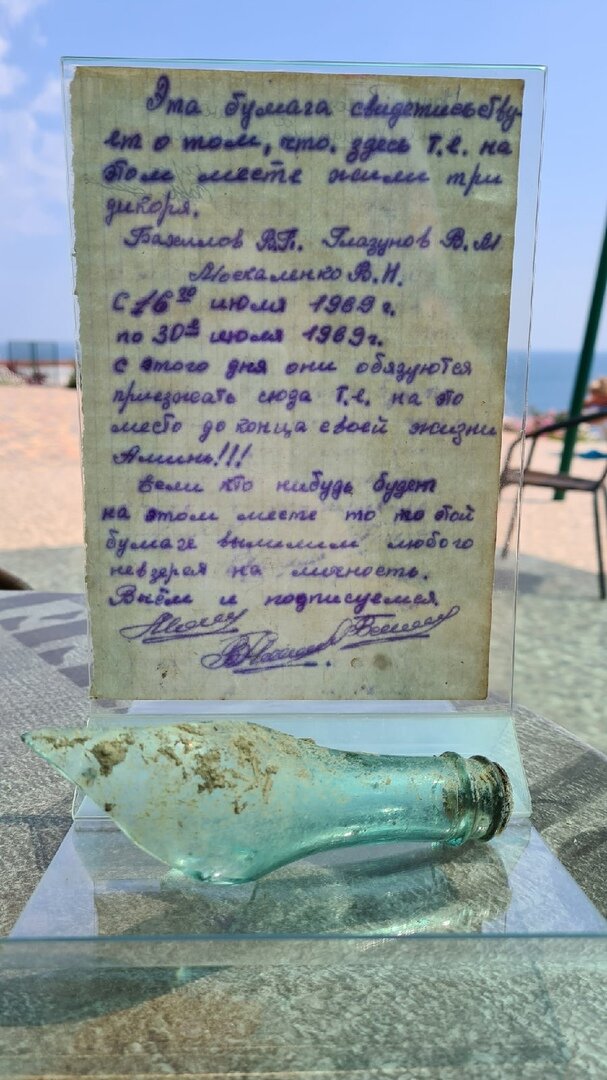 Эта бумага свидетисьству-
ет о том, что. здесь т.е. на
этом месте жили три
дикоря.
Бахилов В.П. Глазунов В.М
Москаленко В.И.
С 16го июля 1969 г.
по 30е июля 1969 г.
с этого дня они обязуются
приезжать сюда т.е. на это
место до конца своей жизни
Аминь!!!
Если кто нибудь будет
на этом месте то по этой
бумаге выпишим любого
невзерая на личность.
В чём и подписуемся.